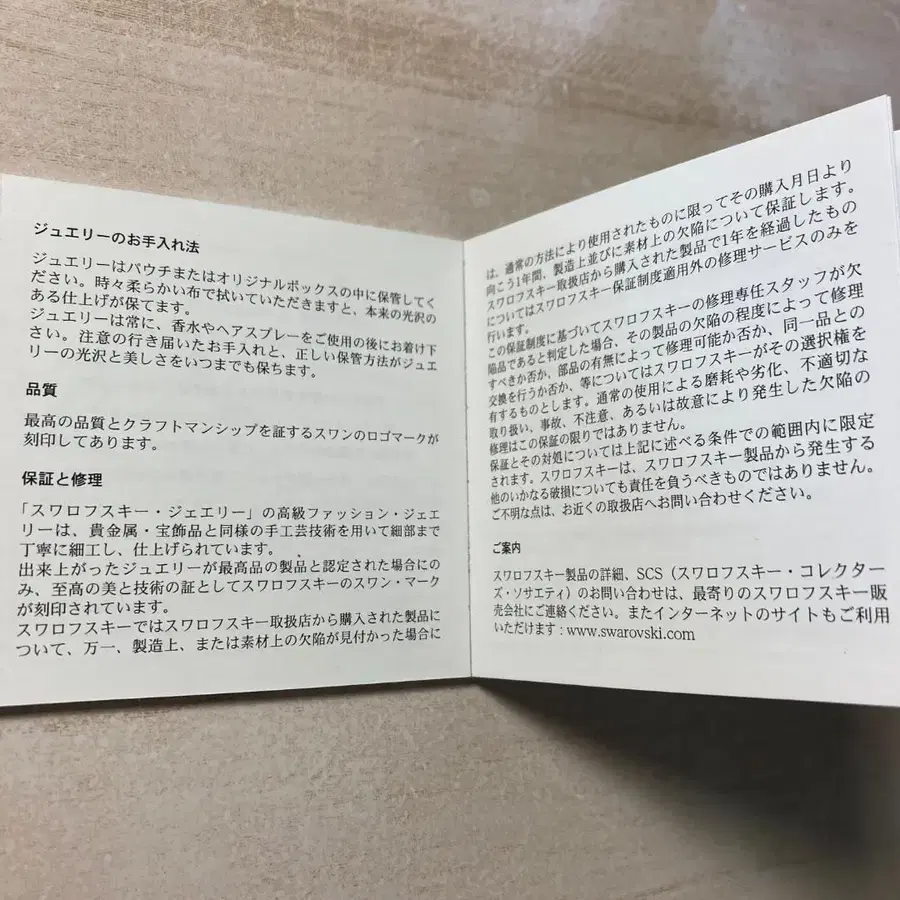 ジュエリーのお手入れ法
ジュエリーはパウチまたはオリジナルボックスの中に保管してく
ださい。時々柔らかい布で拭いていただきますと、本来の光沢の
ある仕上げが保てます。
ジュエリーは常に、香水やヘアスプレーをご使用の後にお着け下
さい。注意の行き届いたお手入れと、正しい保管方法がジュエ
リーの光沢と美しさをいつまでも保ちます。
品質
最高の品質とクラフトマンシップを証するスワンのロゴマークが
刻印してあります。
保証と修理
「スワロフスキー・ジェエリー」の高級ファッション・ジェエ
リーは、貴金属・宝飾品と同様の手工芸技術を用いて細部まで
丁寧に細工し、仕上げられています。
出来上がったジュエリーが最高品の製品と認定された場合にの
み、至高の美と技術の証としてスワロフスキーのスワン・マーク
が刻印されています。
スワロフスキーではスワロフスキー取扱店から購入された製品に
ついて、万一、製造上、または素材上の欠陥が見付かった場合に
は、通常の方法により使用されたものに限ってその購入月日より
向こう1年間、製造上並びに素材上の欠陥について保証します。
スワロフスキー取扱店から購入された製品で1年を経過したもの
についてはスワロフスキー保証制度適用外の修理サービスのみを
行います。
この保証制度に基づいてスワロフスキーの修理専任スタッフが欠
陥品であると判定した場合、その製品の欠陥の程度によって修理
すべきか否か、部品の有無によって修理可能か否か、同一品との
交換を行うか否か、等についてはスワロフスキーがその選択権を
有するものとします。通常の使用による磨耗や劣化、不適切な
取り扱い、事故、不注意、あるいは故意により発生した欠陥の
修理はこの保証の限りではありません。
保証とその対処については上記に述べる条件での範囲内に限定
されます。スワロフスキーは、スワロフスキー製品から発生する
他のいかなる破損についても責任を負うべきものではありません。
ご不明な点は、お近くの取扱店へお問い合わせください。
ご案内
スワロフスキー製品の詳細、SCS（スワロフスキー・コレクター
ズ・ソサエティ）のお問い合わせは、最寄りのスワロフスキー販
売会社にご連絡ください。またインターネットのサイトもご利用
いただけます：www.swarovski.com